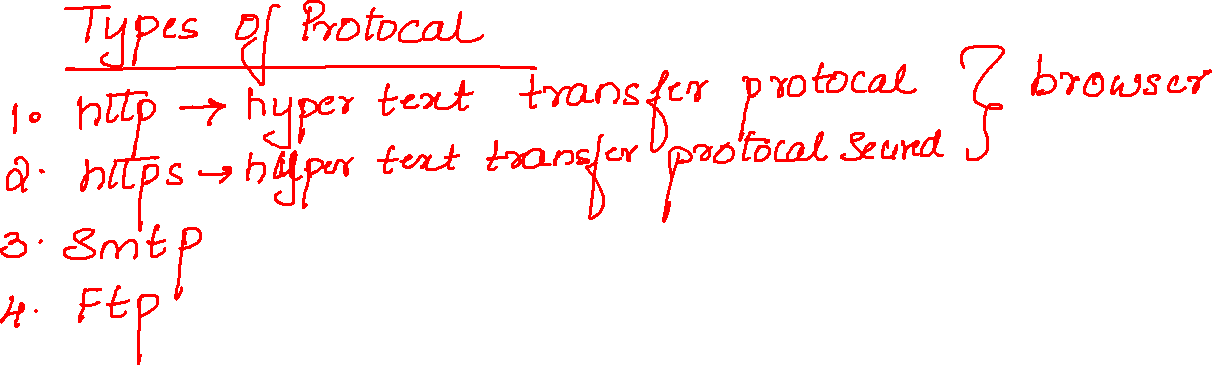 Types of Protocal
1. http → hyper text transfer protocal } browser
2. https → hyper text transfer protocal Secured
3. Smtp
4. Ftp